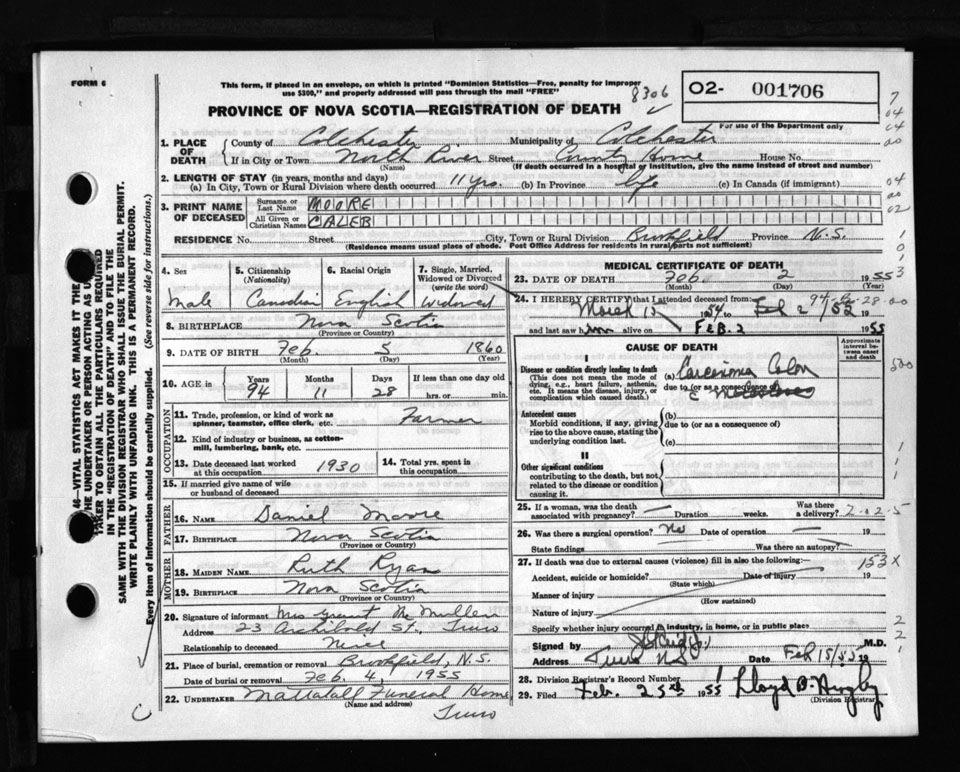 FORM 6
This form, if placed in an envelope, on which is printed "Dominion Statistics—Free, penalty for improper
use $300," and property addressed will pass through the mail "FREE"
8306
PROVINCE OF NOVA SCOTIA—REGISTRATION OF DEATH
02- 001706
For use of the Department only
1. PLACE OF DEATH
County of Colchester Municipality of Colchester
If in City or Town North River Street County Home House No.
(Name) (If death occurred in a hospital or institution, give the name instead of street and number)
2. LENGTH OF STAY (in years, months and days)
(a) In City, Town or Rural Division where death occurred 11 yrs. (b) In Province life (c) In Canada (if immigrant)
3. PRINT NAME OF DECEASED
Surname or Last Name MOORE
All Given or Christian Names CALEB
RESIDENCE No. Street City, Town or Rural Division Brookfield Province N.S.
(Residence means usual place of abode. Post Office Address for residents in rural parts not sufficient)
4. Sex Male
5. Citizenship (Nationality) Canadian
6. Racial Origin English
7. Single, Married, Widowed or Divorced (write the word) Widowed
8. BIRTHPLACE Nova Scotia
(Province or Country)
9. DATE OF BIRTH Feb. 5 1860
(Month) (Day) (Year)
10. AGE in Years 94 Months 11 Days 28 If less than one day old hrs. or min.
OCCUPATION
11. Trade, profession, or kind of work as spinner, teamster, office clerk, etc. Farmer
12. Kind of industry or business, as cotton-mill, lumbering, bank, etc.
13. Date deceased last worked at this occupation 1930
14. Total yrs. spent in this occupation
15. If married give name of wife or husband of deceased
FATHER
16. NAME Daniel Moore
17. BIRTHPLACE Nova Scotia
(Province or Country)
MOTHER
18. MAIDEN NAME Ruth Ryan
19. BIRTHPLACE Nova Scotia
(Province or Country)
20. Signature of informant Mrs Grant McMullen
Address 23 Archibald St. Truro
Relationship to deceased Niece
21. Place of burial, cremation or removal Brookfield, N.S.
Date of burial or removal Feb. 4, 1955
22. UNDERTAKER Mattatall Funeral Home
(Name and address)
Truro
MEDICAL CERTIFICATE OF DEATH
23. DATE OF DEATH Feb. 2 1955
(Month) (Day) (Year)
24. I HEREBY CERTIFY that I attended deceased from:
March 15 1954 to Feb 2 1955
and last saw him alive on FEB. 2 1955
CAUSE OF DEATH
Approximate interval between onset and death
I
Disease or condition directly leading to death (a) Carcinoma Colon
(This does not mean the mode of dying, e.g., heart failure, asthenia, etc. It means the disease, injury, or complication which caused death.)
due to (or as a consequence of)
Antecedent causes (b)
Morbid conditions, if any, giving rise to the above cause, stating the underlying condition last.
due to (or as a consequence of)
(c)
II
Other significant conditions contributing to the death, but not related to the disease or condition causing it.
25. If a woman, was the death associated with pregnancy? Duration weeks. Was there a delivery?
26. Was there a surgical operation? No Date of operation 19
State findings Was there an autopsy?
27. If death was due to external causes (violence) fill in also the following:—
Accident, suicide or homicide? Date of injury 19
(State which)
Manner of injury
(How sustained)
Nature of injury
Specify whether injury occurred in industry, in home, or in public place
Signed by M.D.
Address Truro NS Date Feb 15/55 19
28. Division Registrar's Record Number
29. Filed Feb. 25th 1955
(Division Registrar)
46—VITAL STATISTICS ACT MAKES IT THE
THE UNDERTAKER OR PERSON ACTING AS UNDER-
TAKER TO OBTAIN ALL THE PARTICULARS REQUIRED
IN THE "REGISTRATION OF DEATH" AND TO FILE THE
SAME WITH THE DIVISION REGISTRAR WHO SHALL ISSUE THE BURIAL PERMIT.
WRITE PLAINLY WITH UNFADING INK. THIS IS A PERMANENT RECORD.
Every item of information should be carefully supplied. (See reverse side for instructions.)
153 X